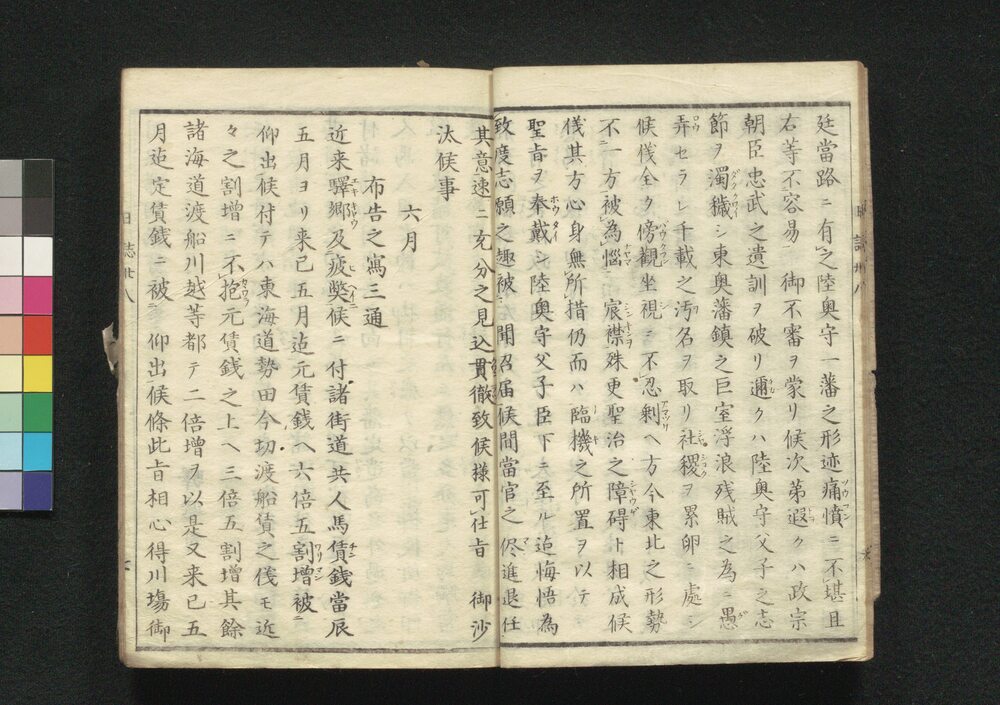 廷當路ニ有之陸奧守一藩之形迹痛憤ニ不堪且
右等不容易　御不審ヲ蒙リ候次第遐クハ政宗
朝臣忠武之遺訓ヲ破リ邇クハ陸奧守父子之志
節ヲ濁穢シ東奧藩鎮之巨室浮浪残賊之為ニ愚
弄セラレ千載之汚名ヲ取リ社稷ヲ累卵ニ處シ
候儀全ク傍觀坐視ニ不忍剰ヘ方今東北之形勢
不一方被為惱　宸襟殊更聖治之障碍ト相成候
儀其方心身無所措仍而ハ臨機之所置ヲ以テ
聖旨ヲ奉戴シ陸奧守父子臣下ニ至ル迄悔悟為
致度志願之趣被　聞召届候間當官之侭進退任
其意速ニ充分之見込貫徹致候様可仕旨　御沙
汰候事
六月
布告之寫三通
近来驛郷及疲獘候ニ付諸街道共人馬賃錢當辰
五月ヨリ来巳五月迄元賃錢ヘ六倍五割增被
仰出候付テハ東海道勢田今切渡船賃之儀モ近
々之割增ニ不抱元賃錢之上ヘ三倍五割增其餘
諸海道渡船川越等都テ二倍增ヲ以是又来巳五
月迄定賃錢ニ被　仰出候條此旨相心得川場御
日誌廿八